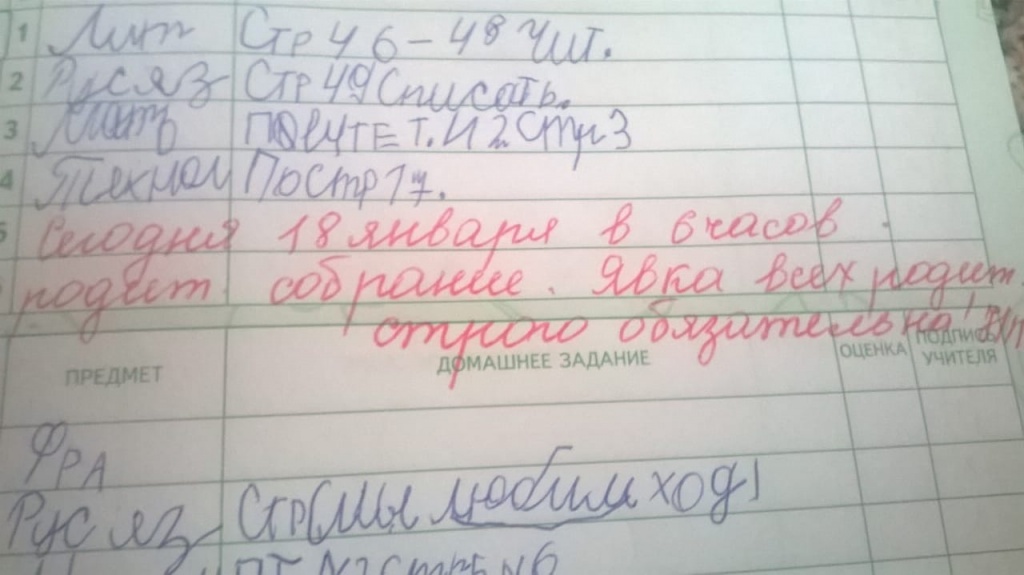 1 Лит Стр 46-48 Чит.
2 Рус яз Стр 49 Списать.
3
4 Технол По стр 17.
5 Сегодня 18 января в 6 часов
родит. собрание. Явка всех родит.
строго обязательна!
ПРЕДМЕТ ДОМАШНЕЕ ЗАДАНИЕ ОЦЕНКА ПОДПИСЬ УЧИТЕЛЯ
ФРА
Рус яз Стр(Мы любим ход)